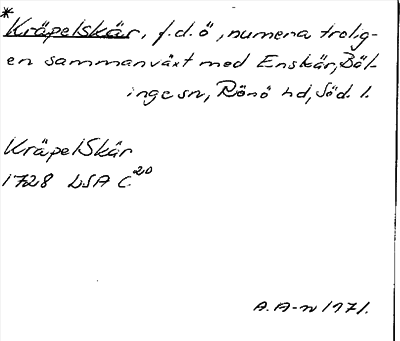 *Kräpelskär, f.d.ö, numera trolig-
en sammanväxt med Enskär, Bäl-
inge sn, Rönö hd, Söd. l.
KräpelSkär
1728 LSA C 20
A. A-n 1971.